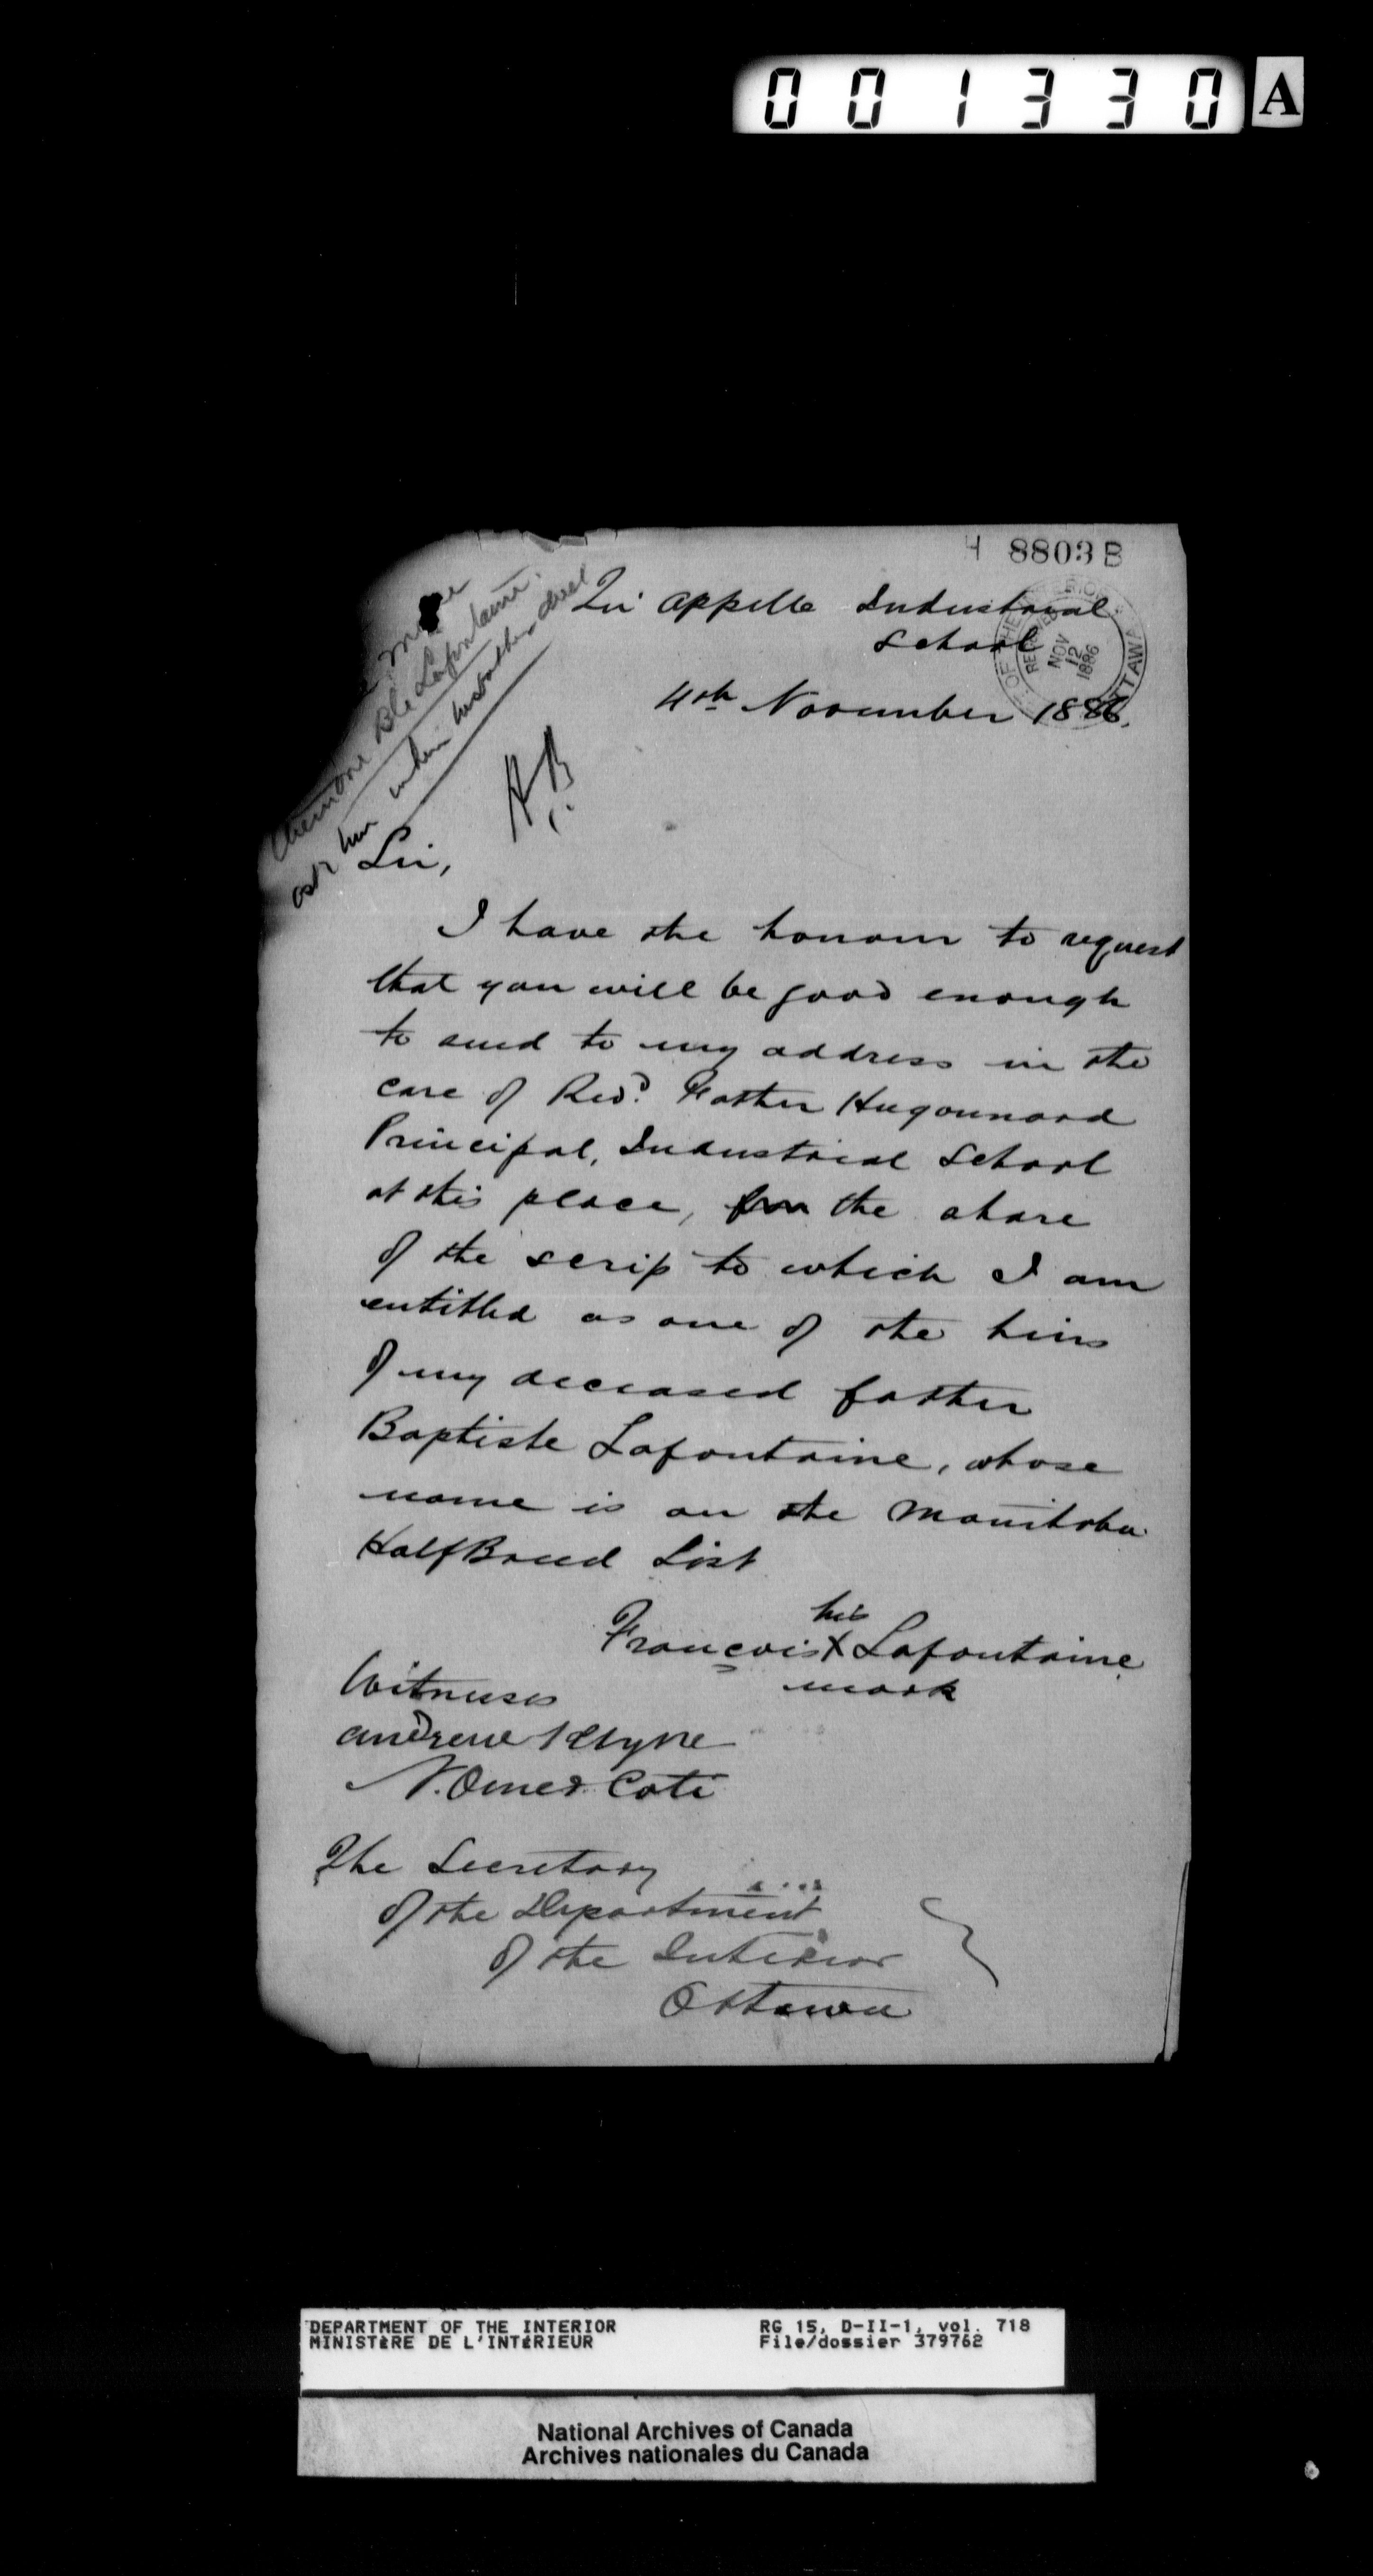 001330 A
H 8803 B
Qu'appelle Industrial
School
OF THE INTERIOR
RECEIVED
NOV
12
1886
OTTAWA
4th November 1886.
Bte Lafontaine.
ask him when his brother died
Sir,
I have the honour to request
that you will be good enough
to send to my address in the
care of Revd. Father Hugonnard
Principal, Industrial School
at this place, for the share
of the scrip to which I am
entitled as one of the heirs
of my deceased father
Baptiste Lafontaine, whose
name is on the Manitoba
Half Breed List
his
François X Lafontaine
mark
Witnesses
Andrew Klyne
N. Omer Coté
The Secretary
of the Department
of the Interior
Ottawa
DEPARTMENT OF THE INTERIOR RG 15, D-II-1, vol. 718
MINISTÈRE DE L'INTÉRIEUR File/dossier 379762
National Archives of Canada
Archives nationales du Canada